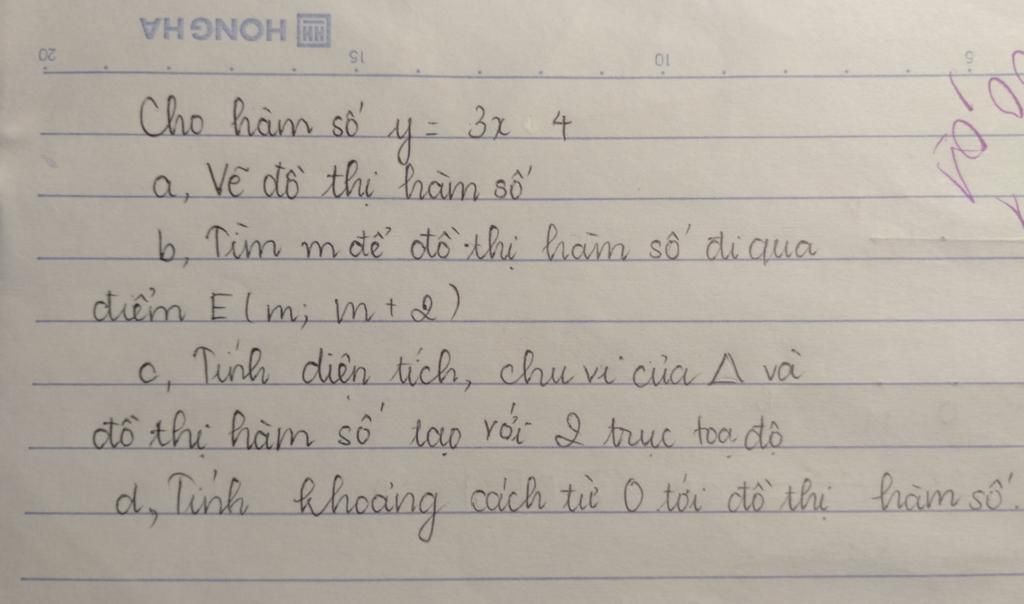 HONG HA
20 15 10 5
Cho hàm số y = 3x 4
a, Vẽ đồ thị hàm số
b, Tìm m để đồ thị hàm số đi qua
điểm E(m; m + 2)
c, Tính diện tích, chu vi của Δ và
đồ thị hàm số tạo với 2 trục toạ độ
d, Tính khoảng cách từ O tới đồ thị hàm số.